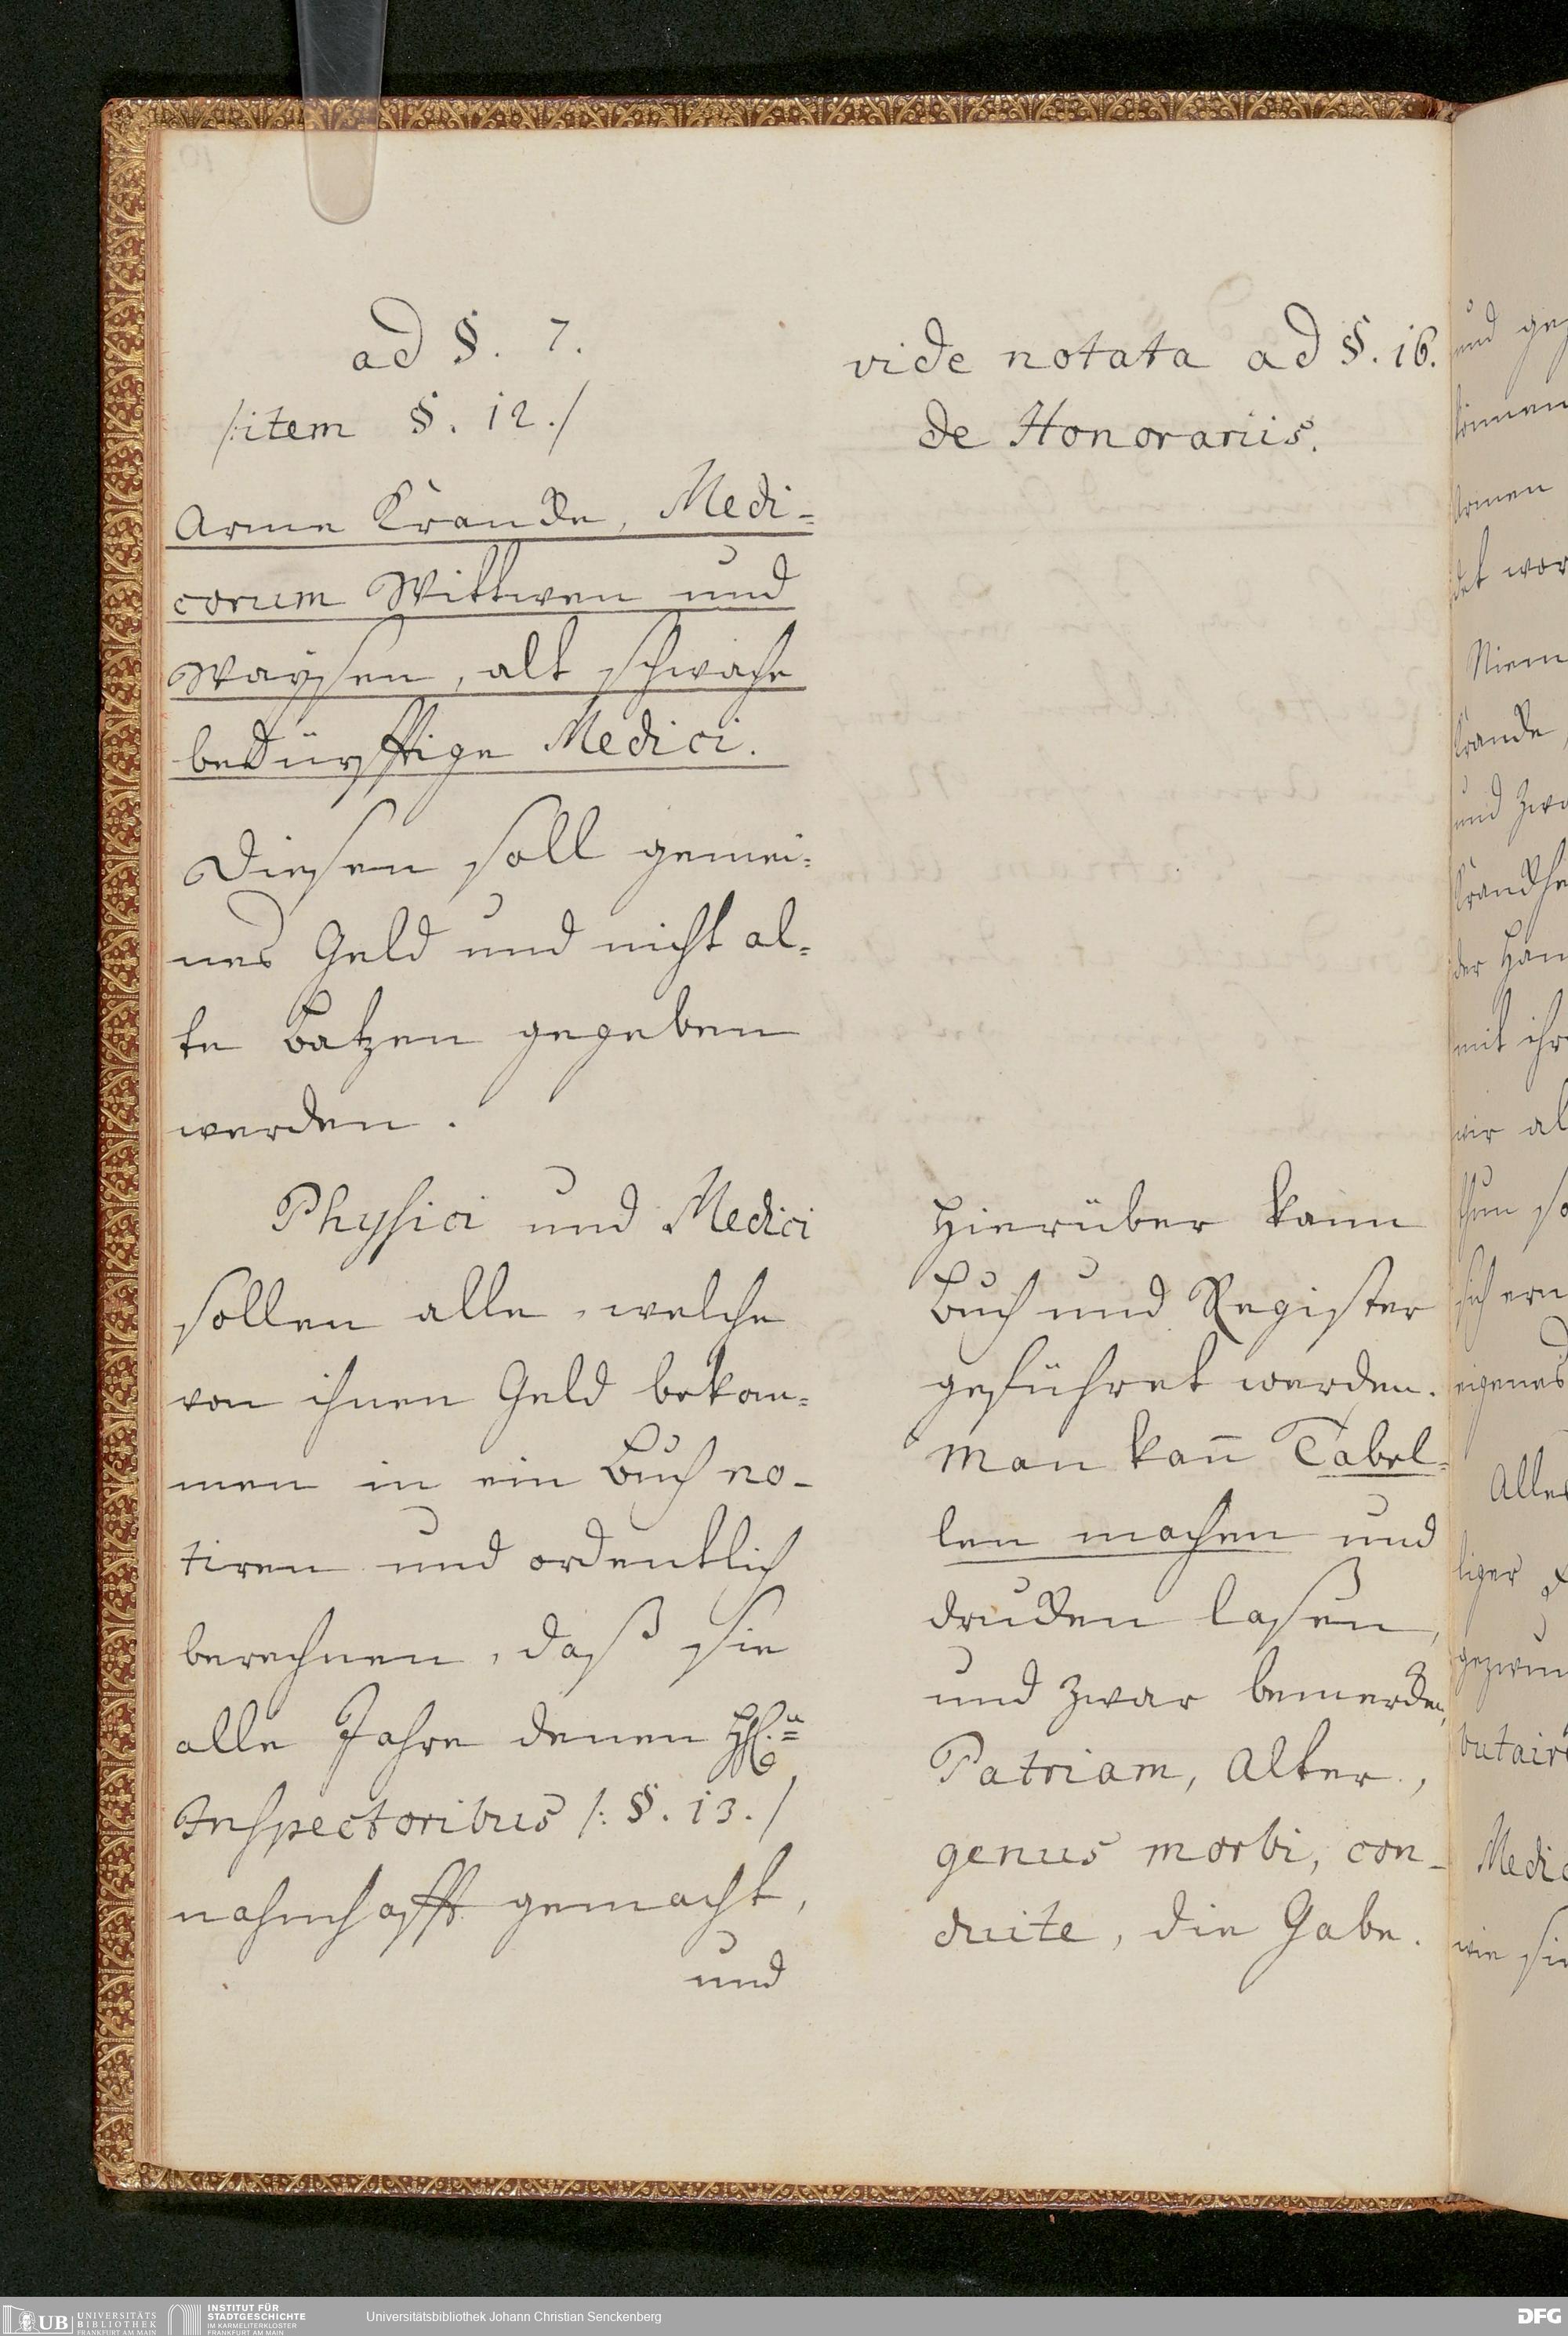 ad §. 7.
/:item §. 12./
Arme Krancke, Medi-
corum Wittwen und
Waysen, alt schwache
bedürfftige Medici.
Diesen soll gemei-
nes Geld und nicht al-
te Batzen gegeben
werden.
Physici und Medici
sollen alle, welche
von ihnen Geld bekom-
men in ein Buch no-
tiren und ordentlich
berechnen, daß sie
alle Jahre denen
Inspectoribus /: §. 13. /
nahmhafft gemacht,
und
vide notata ad §. 16.
de Honorariis.
Hierüber kann
Buch und Register
geführet werden.
Man kan̄ Tabel-
len machen und
drucken lasen,
und zwar bemercken,
Patriam, Alter,
genus morbi, con-
duite, die Gabe.
UB UNIVERSITÄTS
BIBLIOTHEK
FRANKFURT AM MAIN
INSTITUT FÜR
STADTGESCHICHTE
IM KARMELITERKLOSTER
FRANKFURT AM MAIN
Universitätsbibliothek Johann Christian Senckenberg
DFG